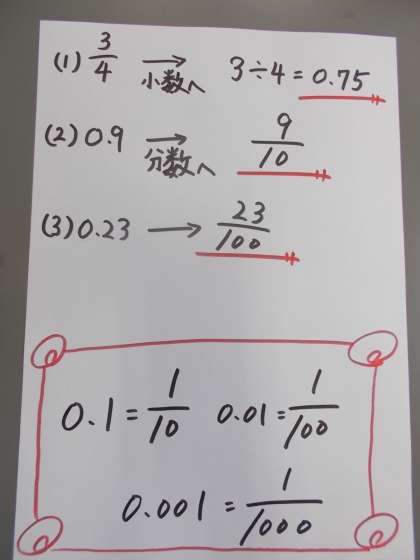 (1) 3/4 → 小数へ 3÷4 = 0.75
(2) 0.9 → 分数へ 9/10
(3) 0.23 → 23/100
0.1 = 1/10 0.01 = 1/100
0.001 = 1/1000